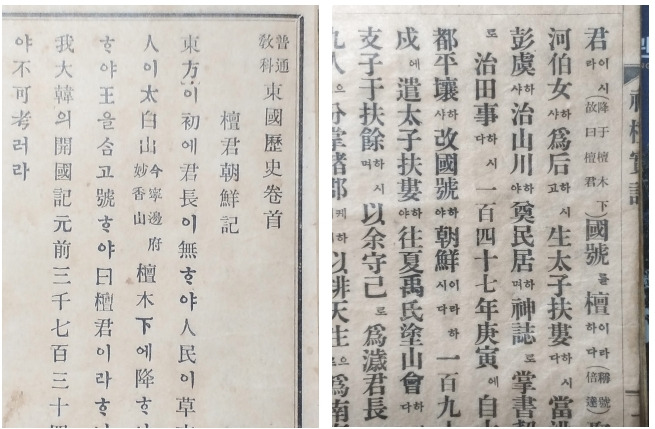 普通敎科 東國歷史卷首
檀君朝鮮記
東方이初에君長이無ᄒᆞ야人民이草
人이太白山今寧邊府妙香山檀木下에降ᄒᆞ
ᄒᆞ야王을ᄉᆞᆷ고號ᄒᆞ야曰檀君이라ᄒᆞ
我大韓의開國記元前三千七百三十四
야不可考러라
神檀實記
君이시라(降于檀木下故曰檀君)國號를檀이라하다(稱號倍達)
河伯女하샤爲后하시고生太子扶婁하시다當洪
彭虞하샤治山川하야奠民居하며神誌로掌書契
로治田事하시다一百四十七年庚寅에自
都平壤하샤改國號하야朝鮮이라하시다一百九
戍에遣太子扶婁하야往夏禹氏塗山會하다
支子于扶餘하시며以余守己로爲濊君長
九人으分掌諸郡케하以排天生으爲南